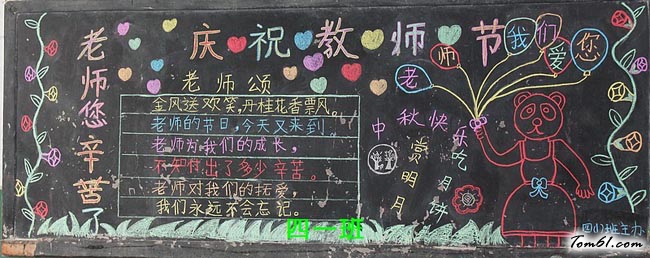 庆祝教师节
老师您辛苦了
老师颂
金风送欢笑,丹桂花香票风。
老师的节日,今天又来到。
老师为我们的成长,
不知付出了多少辛苦。
老师对我们的抚爱,
我们永远不会忘记。
老师我们爱您
中秋快乐
赏明月
吃月饼
四(1)班主办
四一班
Tom61.com